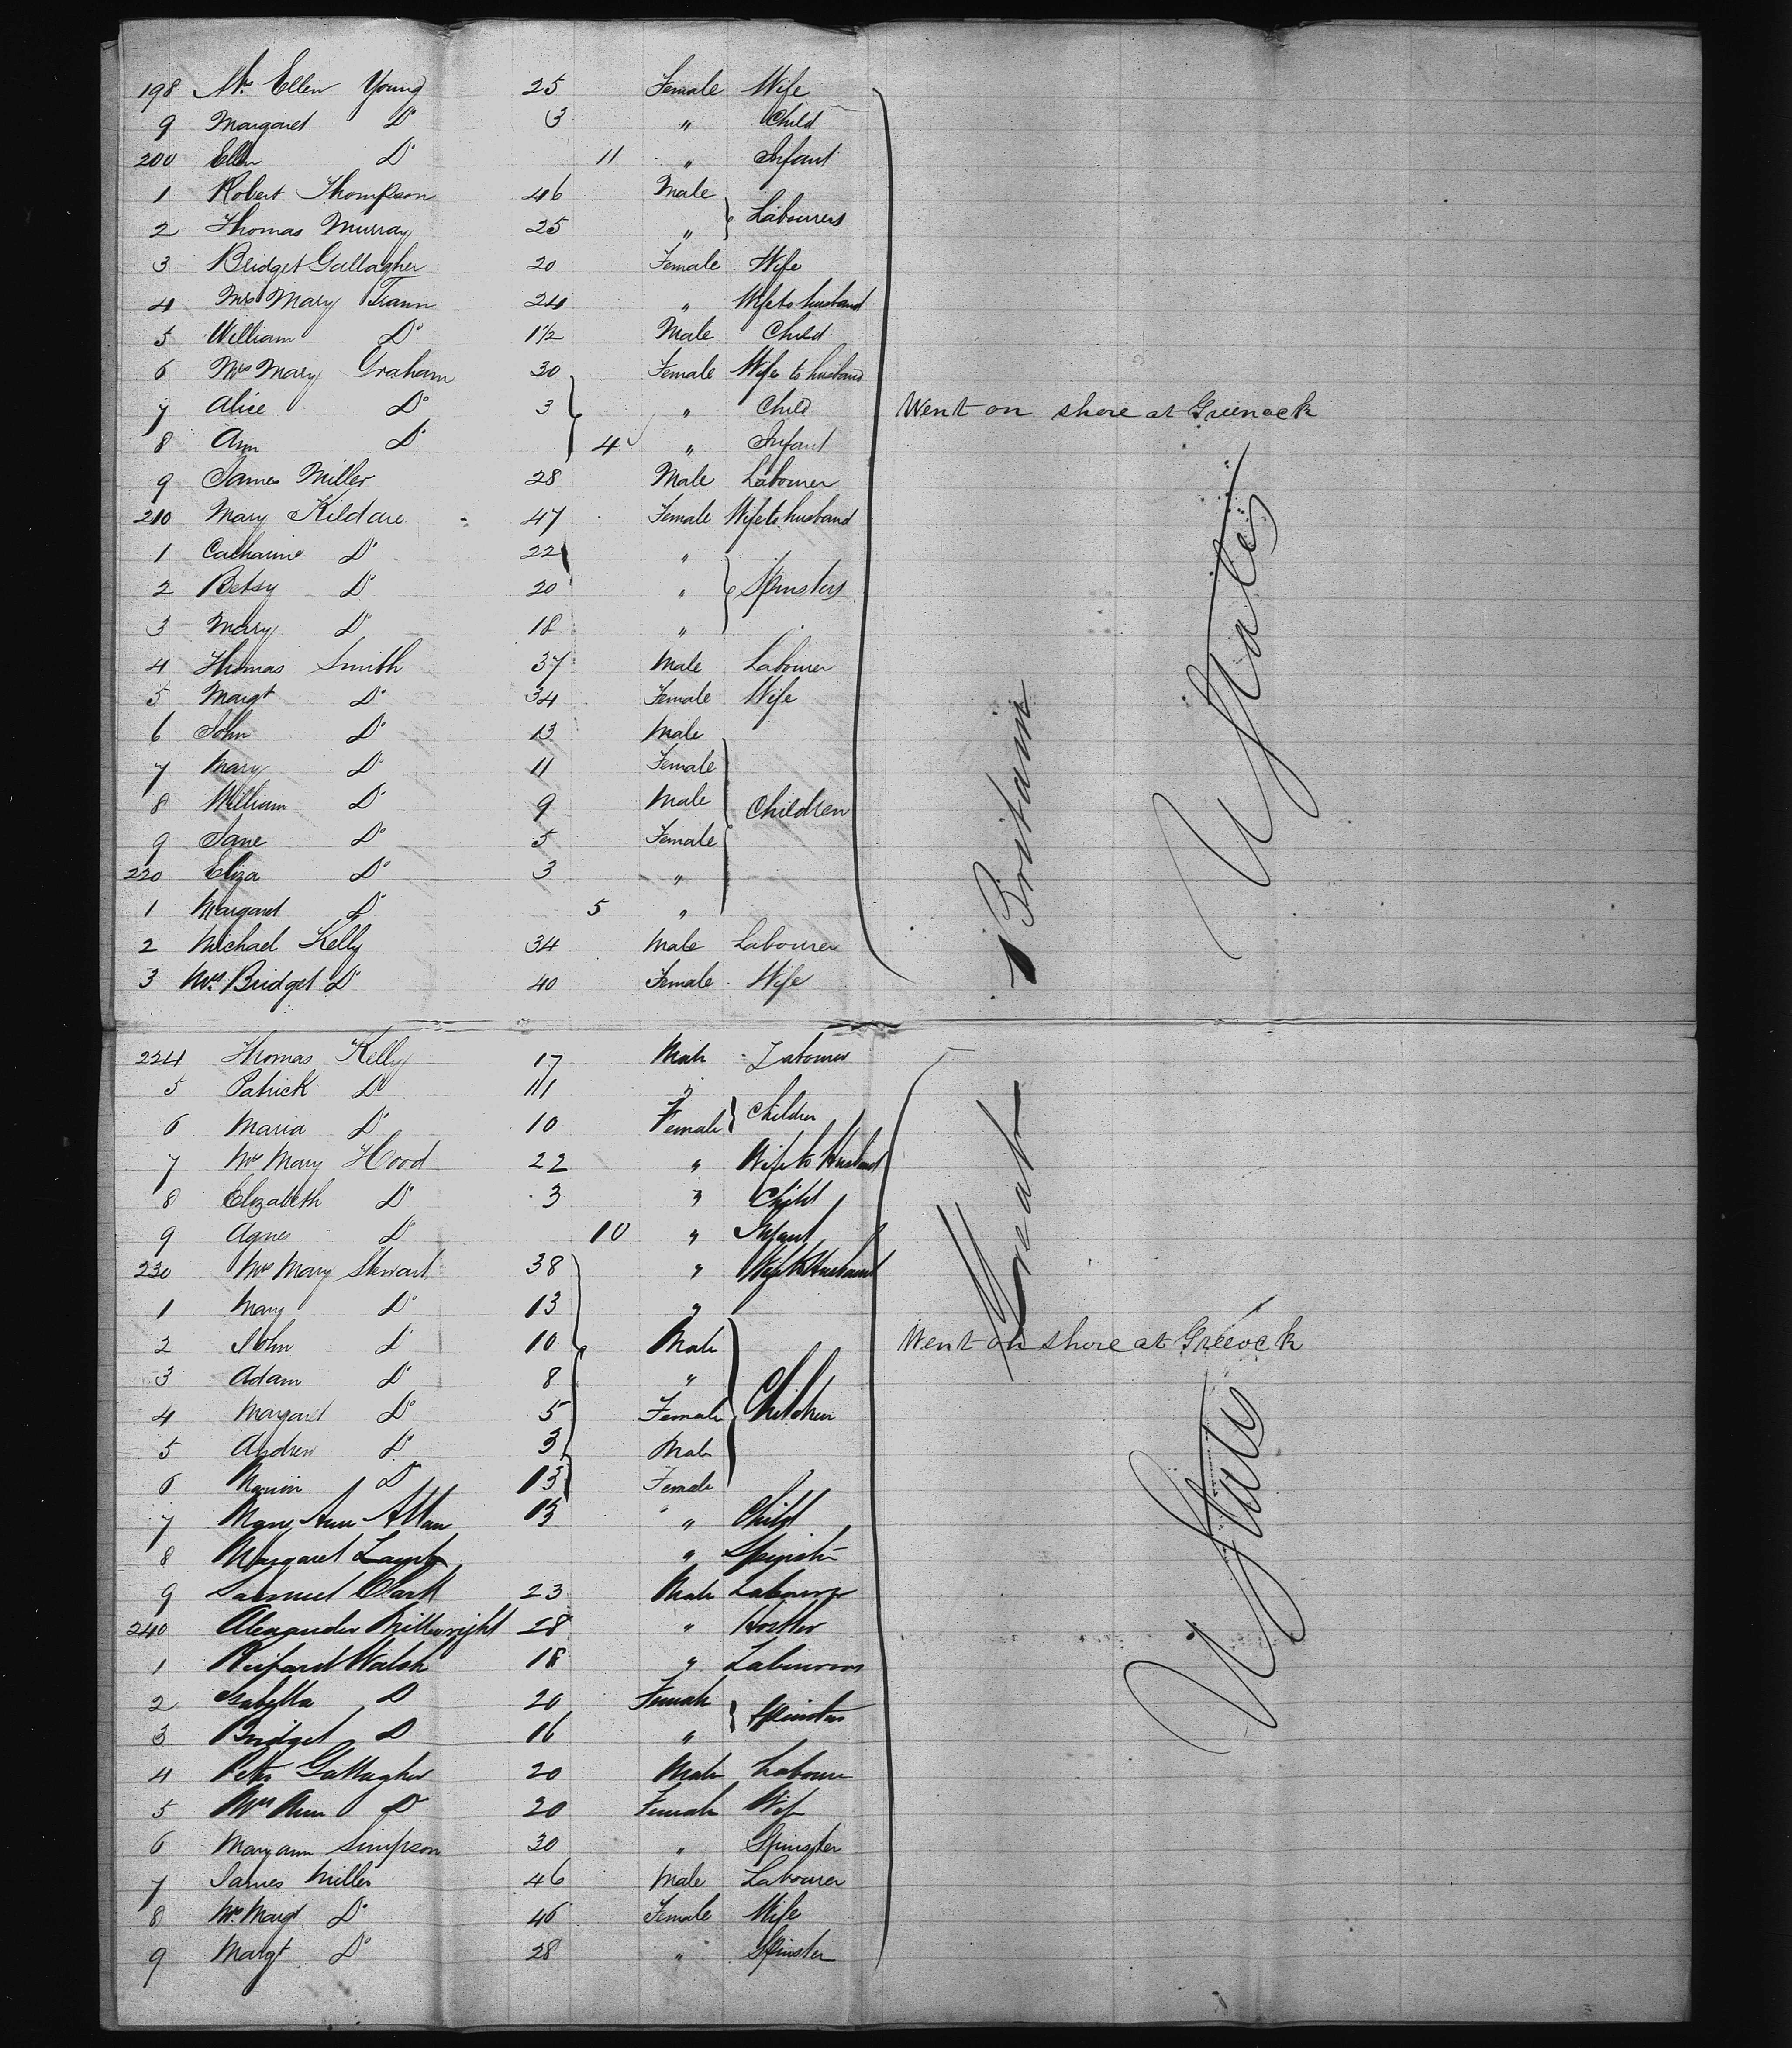 198 Mrs Ellen Young 25 Female Wife
9 Margaret Do 3 " Child
200 Ellen Do 11 " Infant
1 Robert Thompson 46 Male
Labourers
2 Thomas Murray 25 "
3 Bridget Gallagher 20 Female Wife
4 Mrs Mary 24 " Wife to husband
5 William Do 1½ Male Child
6 Mrs Mary Graham 30 Female Wife to husband
7 Alice Do 3 " Child Went on shore at Greenock
8 Ann Do 4 " Infant
9 James Miller 28 Male Labourer
210 Mary Kildare 47 Female Wife to husband
1 Catharine Do 22 "
2 Betsy Do 20 " Spinsters
3 Mary Do 18 "
4 Thomas Smith 37 Male Labourer
5 Margt Do 34 Female Wife
6 John Do 13 Male
7 Mary Do 11 Female
8 William Do 9 Male Children
9 Jane Do 5 Female
220 Eliza Do 3 "
1 Margaret Do 5 "
2 Michael Kelly 34 Male Labourer
3 Mrs Bridget Do 40 Female Wife
224 Thomas Kelly 17 Male Labourer
5 Patrick Do 11 "
Children
6 Maria Do 10 Female
7 Mrs Mary Hood 22 " Wife to Husband
8 Elizabeth Do 3 " Child
9 Agnes Do 10 " Infant
230 Mrs Mary Stewart 38 " Wife to Husband
1 Mary Do 13 "
2 John Do 10 Male Went on shore at Greeock
3 Adam Do 8 "
4 Margaret Do 5 Female Children
5 Andrew Do 3 Male
6 Marion Do 13 Female
7 Mary Ann Allan " Child
8 Margaret " Spinster
9 Samuel Clark 23 Male Labourer
240 Alexander 28 " Hostler
1 Richard Walsh 18 " Labourers
2 Isabella D 20 Female
Spinsters
3 Bridget D 16 "
4 Peter Gallagher 20 Male Labourer
5 Mrs Ann D 20 Female Wife
6 Maryann Simpson 30 " Spinster
7 James Miller 46 Male Labourer
8 Mrs Margt Do 46 Female Wife
9 Margt Do 28 " Spinster
Great Britain
U States
U States